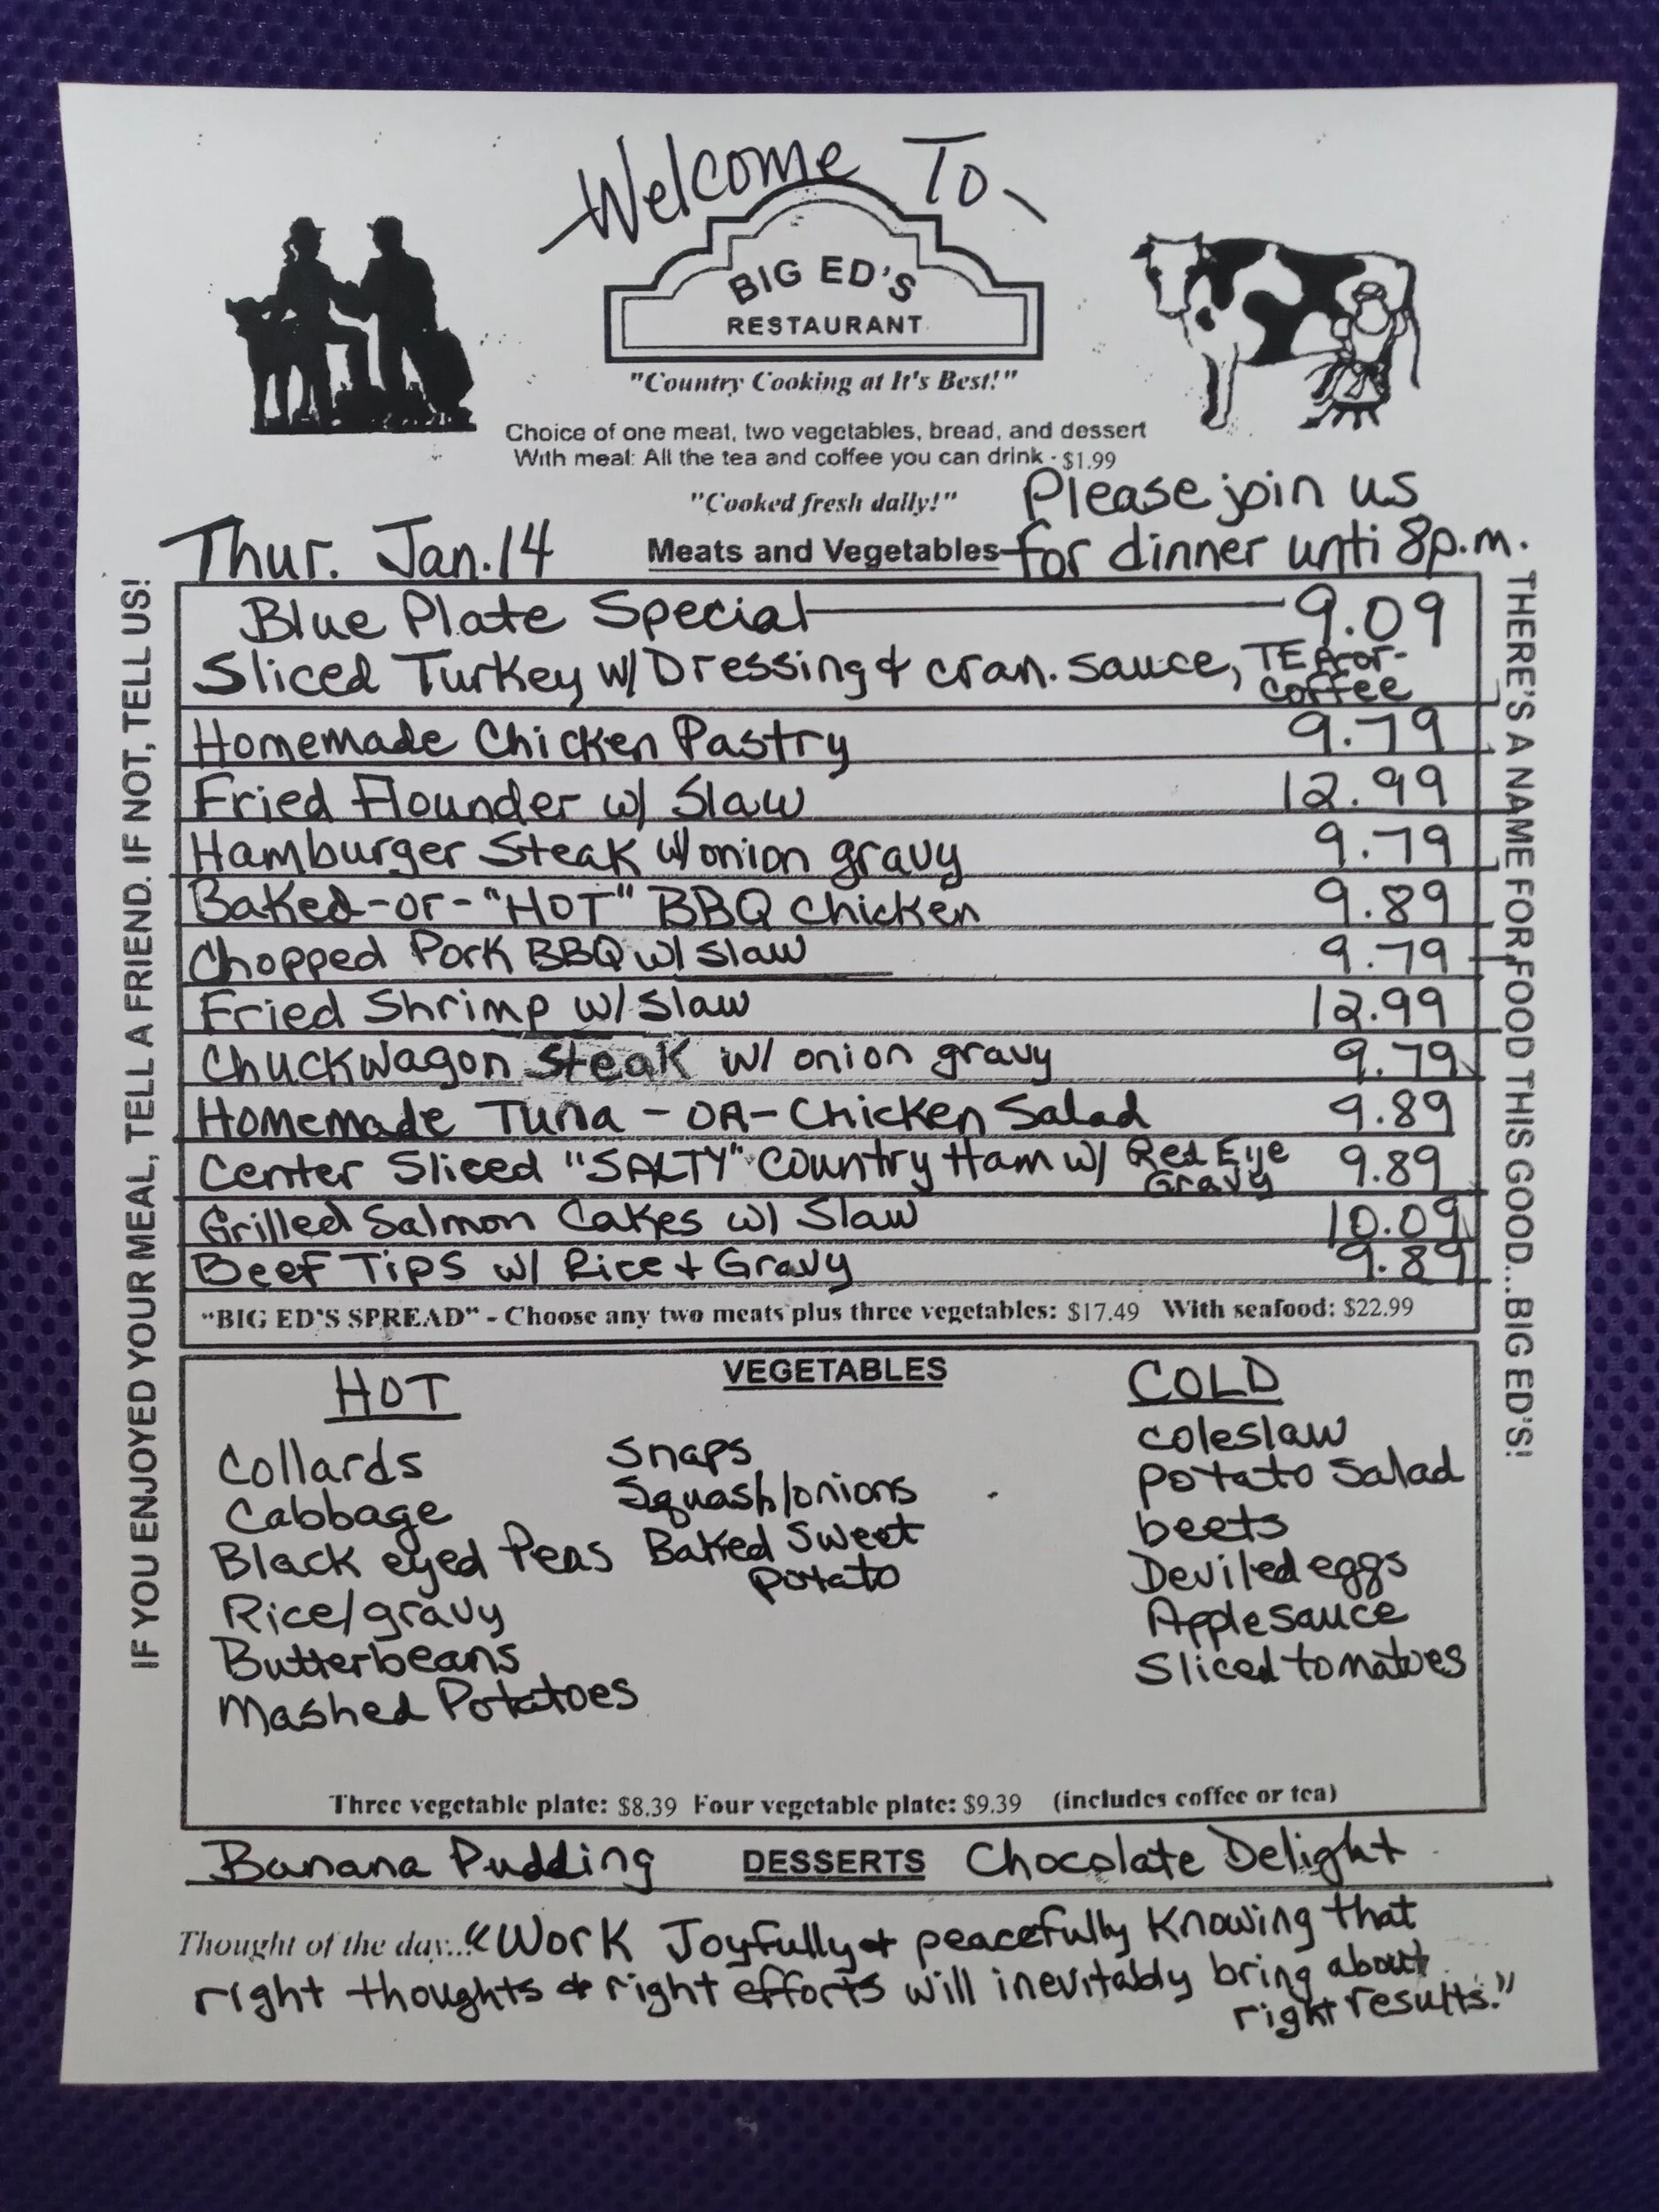 Welcome To
BIG ED'S
RESTAURANT
"Country Cooking at It's Best!"
Choice of one meat, two vegetables, bread, and dessert
With meal: All the tea and coffee you can drink - $1.99
"Cooked fresh daily!"
Please join us
for dinner unti 8p.m.
Thur. Jan. 14
Meats and Vegetables
IF YOU ENJOYED YOUR MEAL, TELL A FRIEND. IF NOT, TELL US!
THERE'S A NAME FOR FOOD THIS GOOD...BIG ED'S!
Blue Plate Special 9.09
Sliced Turkey w/ Dressing & cran. sauce, TEA-or-
coffee
Homemade Chicken Pastry 9.79
Fried Flounder w/ Slaw 12.99
Hamburger Steak w/ onion gravy 9.79
Baked-or-"HOT" BBQ Chicken 9.89
Chopped Pork BBQ w/ slaw 9.79
Fried Shrimp w/ Slaw 12.99
Chuckwagon Steak w/ onion gravy 9.79
Homemade Tuna - OR - Chicken Salad 9.89
Center Sliced "SALTY" Country Ham w/ Red Eye
Gravy 9.89
Grilled Salmon Cakes w/ Slaw 10.09
Beef Tips w/ Rice + Gravy 9.89
"BIG ED'S SPREAD" - Choose any two meats plus three vegetables: $17.49 With seafood: $22.99
VEGETABLES
HOT
Collards
Cabbage
Black eyed Peas
Rice/gravy
Butterbeans
Mashed Potatoes
Snaps
Squash/onions
Baked Sweet
Potato
COLD
coleslaw
Potato Salad
beets
Deviled eggs
Applesauce
Sliced tomatoes
Three vegetable plate: $8.39 Four vegetable plate: $9.39 (includes coffee or tea)
Banana Pudding DESSERTS Chocolate Delight
Thought of the day... "Work Joyfully & peacefully Knowing that
right thoughts & right efforts will inevitably bring about
right results."